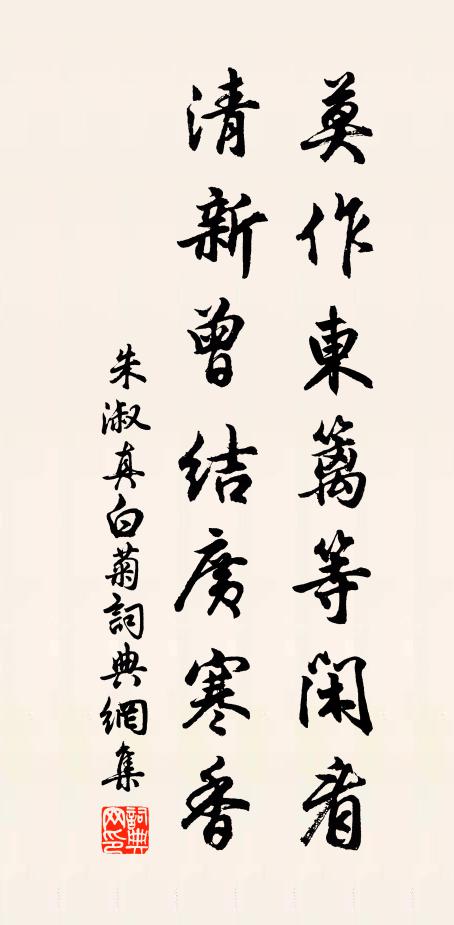 莫作東籬等閑看
清新曾結廣寒香
朱淑真白菊詞典網集
詞典網印